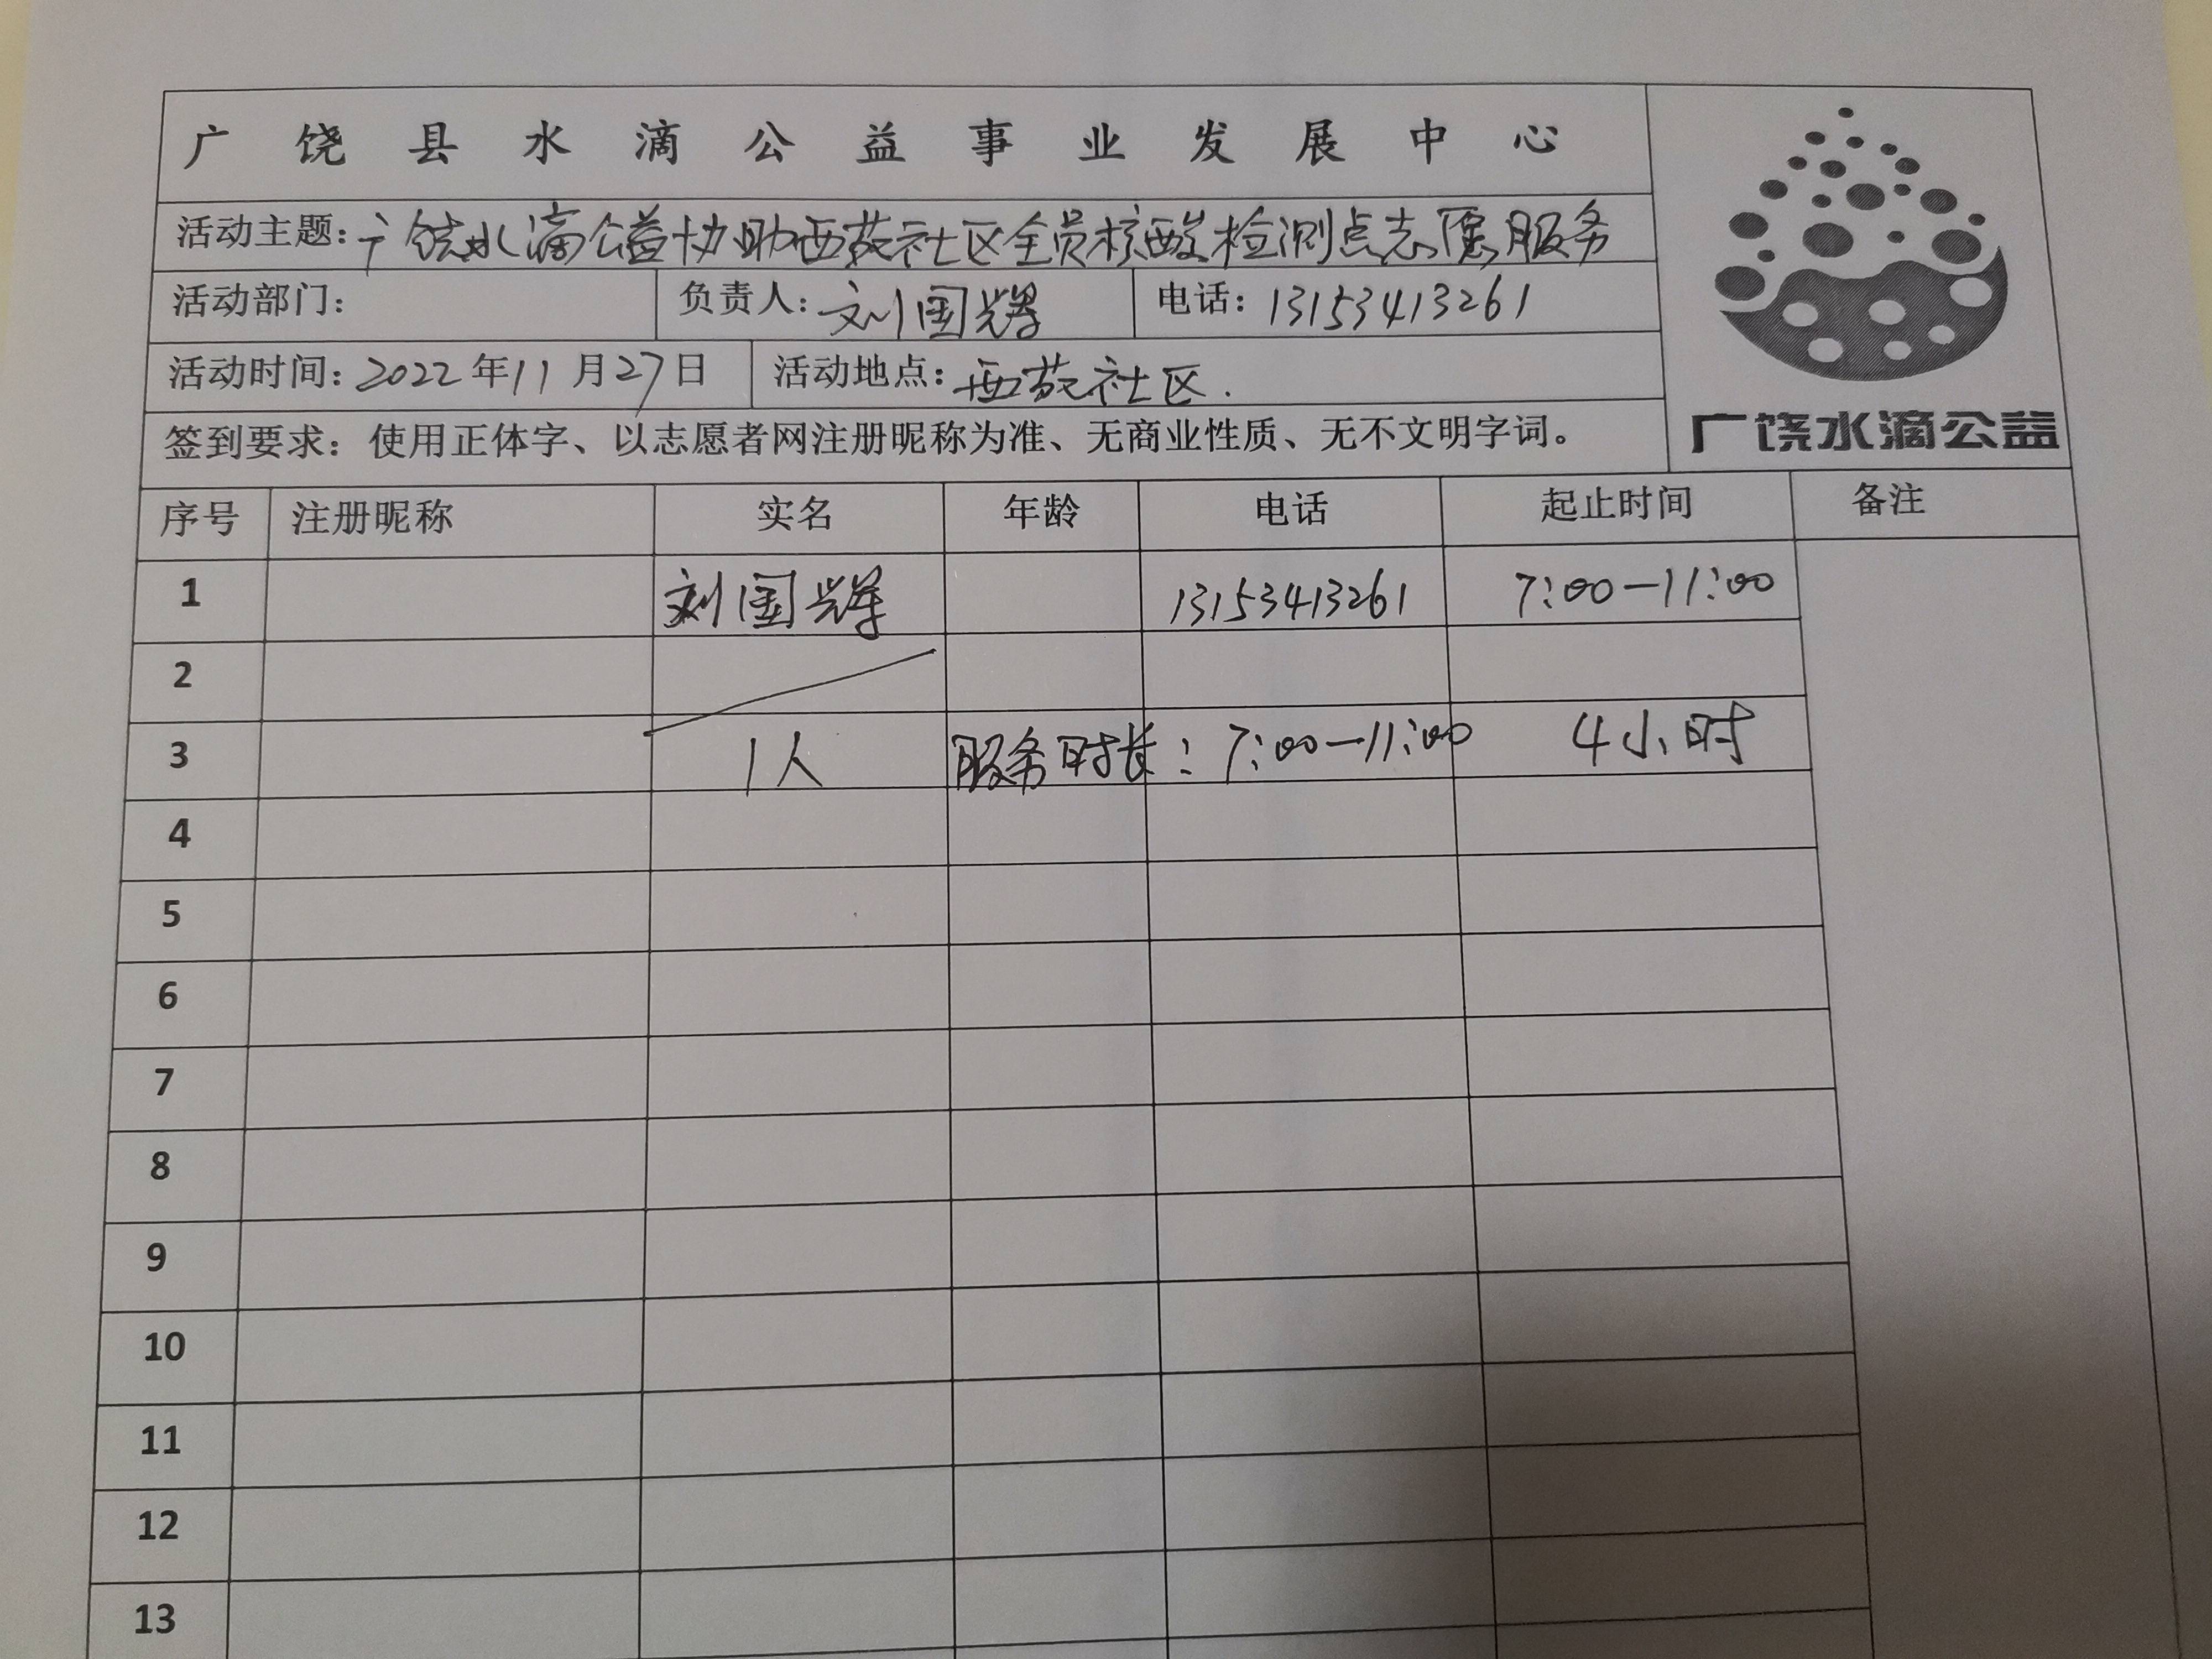 广饶县水滴公益事业发展中心
活动主题：广饶水滴公益协助西苑社区全员核酸检测点志愿服务
活动部门： 负责人：刘国辉 电话：13153413261
活动时间：2022年11月27日 活动地点：西苑社区.
签到要求：使用正体字、以志愿者网注册昵称为准、无商业性质、无不文明字词。
广饶水滴公益
序号 注册昵称 实名 年龄 电话 起止时间 备注
1 刘国辉 13153413261 7:00—11:00
2
3 1人 服务时长：7:00—11:00 4小时
4
5
6
7
8
9
10
11
12
13